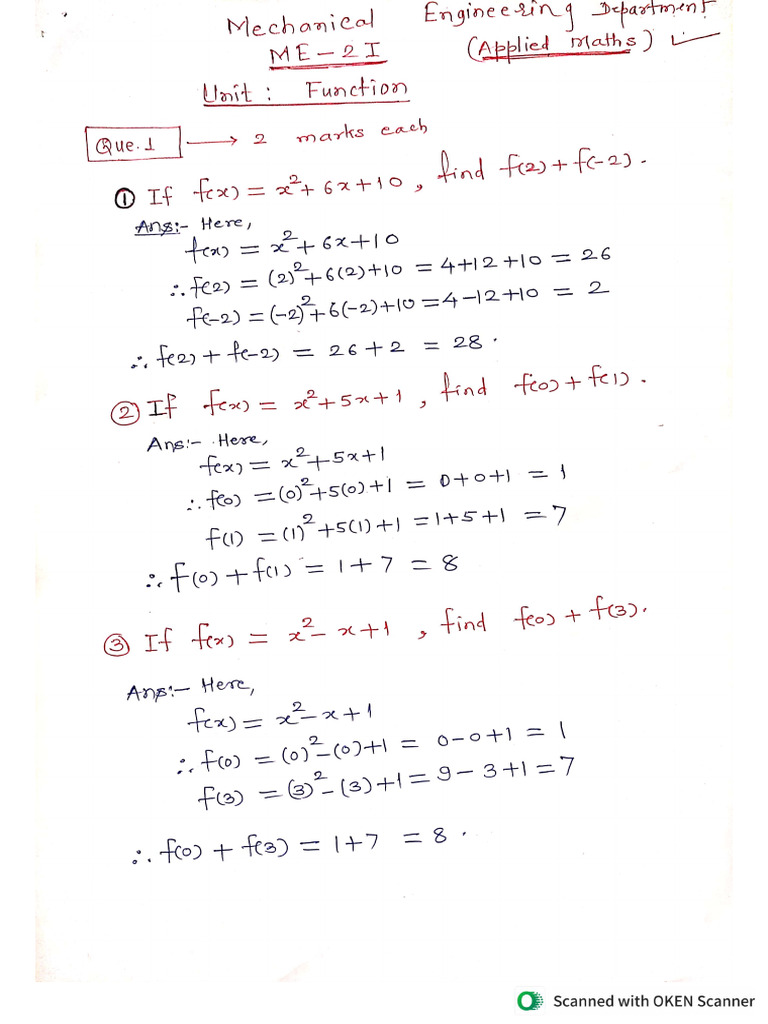 Mechanical Engineering Department
ME-2I (Applied Maths)
Unit : Function
Que.1 → 2 marks each
① If f(x) = x²+6x+10, find f(2)+f(-2).
Ans:- Here,
f(x) = x²+6x+10
∴ f(2) = (2)²+6(2)+10 = 4+12+10 = 26
f(-2) = (-2)²+6(-2)+10 = 4-12+10 = 2
∴ f(2) + f(-2) = 26+2 = 28.
② If f(x) = x²+5x+1, find f(0)+f(1).
Ans:- Here,
f(x) = x²+5x+1
∴ f(0) = (0)²+5(0)+1 = 0+0+1 = 1
f(1) = (1)²+5(1)+1 = 1+5+1 = 7
∴ f(0)+f(1) = 1+7 = 8
③ If f(x) = x²-x+1, find f(0)+f(3).
Ans:- Here,
f(x) = x²-x+1
∴ f(0) = (0)²-(0)+1 = 0-0+1 = 1
f(3) = (3)²-(3)+1 = 9-3+1 = 7
∴ f(0) + f(3) = 1+7 = 8.
Scanned with OKEN Scanner